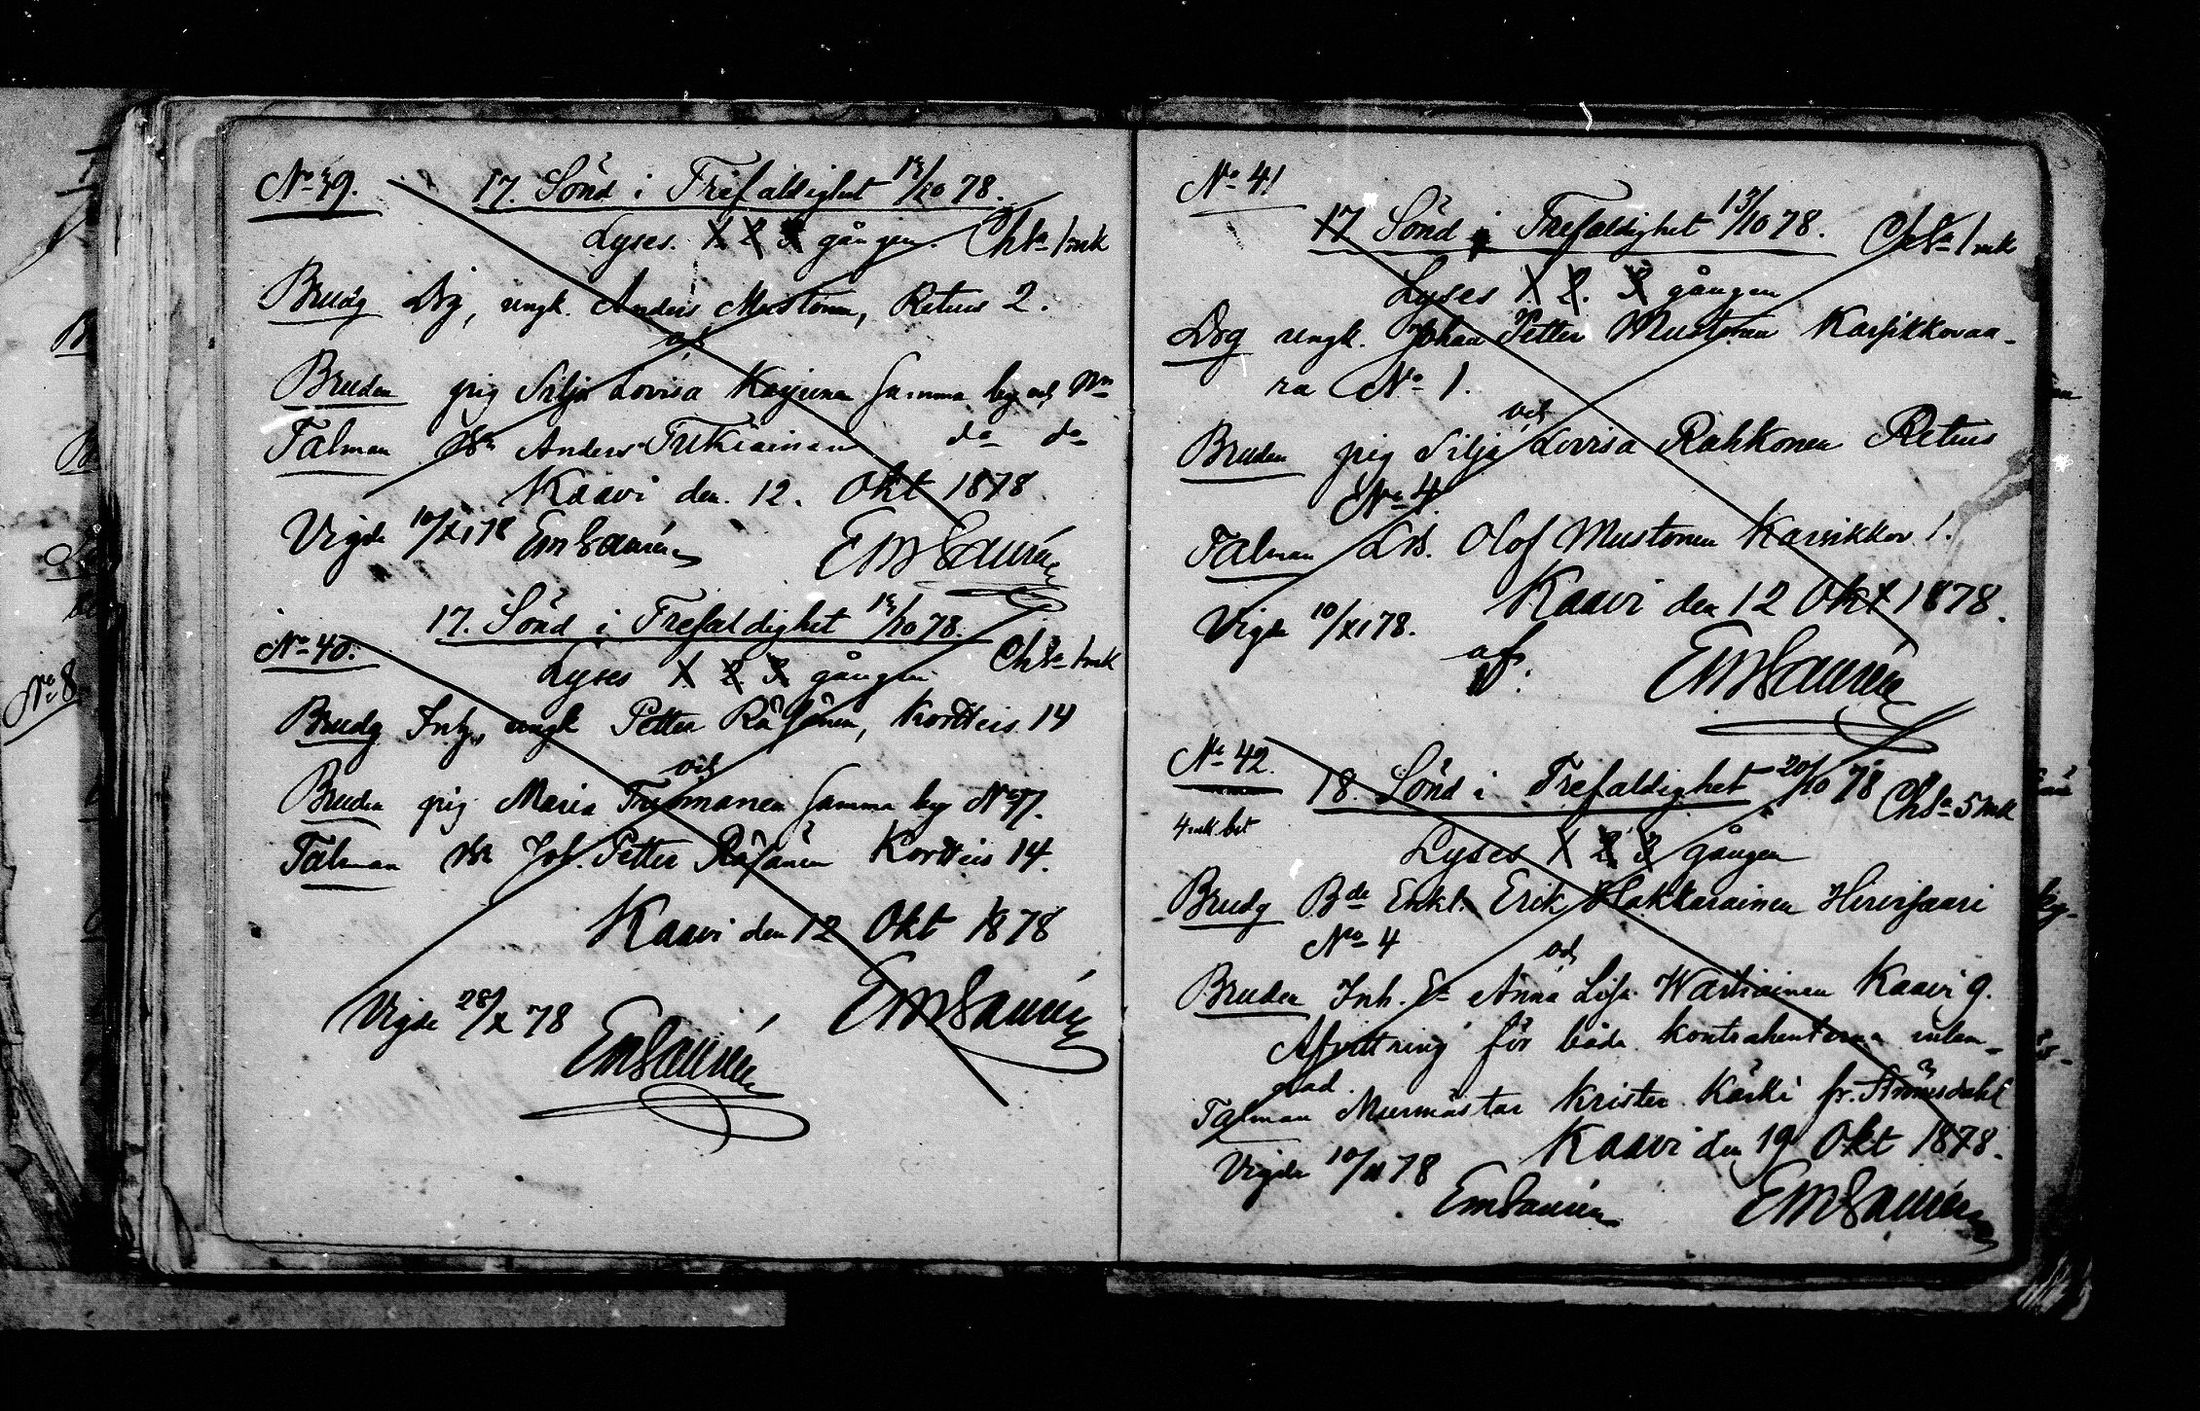 No 39. 17. Sönd i Trefaldighet 13/10 78.
Lyses. 1 2 3 gången. Chsa 1 mk
Brudg Drg, ungk. Anders Mustonen, Retus 2.
och
Bruden pig Silja Lovisa Karjunen samma by och No
Talman Anders Tukiainen do do
Kaavi den. 12. Okt 1878.
Vigde 10/XI 78 EmSaurén EMSaurén
17. Sönd i Trefaldighet 13/10 78.
No 40.
Lyses 1 2 3 gången Chsa 1 mk
Brudg Inh, ungk Petter Räsänen, Kortteis 14
och
Bruden pig Maria samma by No 17.
Talman Joh. Petter Räsänen Kortteis 14.
Kaavi den 12 Okt 1878
EMSaurén
Vigde 28/X 78
EmSaurén
No 41
17 Sönd i Trefaldighet 13/10 78. Chsa 1 mk
Lyses 1. 2. 3 gången
Drg ungk. Johan Petter Mustonen Karsikkovaa-
ra No 1.
och
Bruden pig Silja Lovisa Rahkonen Retus
No 4.
Talman Olof Mustonen Karsikkov 1.
Kaavi den 12 Okt 1878.
Vigde 10/XI 78.
af
EMSaurén
No 42.
18. Sönd i Trefaldighet 20/10 78 Chsa 5 mk
4 mk bet
Lyses 1 2 3 gången
Brudg Bde Enkl. Erik Hakkarainen Hirvisaari
No 4
och
Bruden Inh. Anna Lisa Wartiainen Kaavi 9.
Afvittring för båda kontrahenterna inlem-
nad.
Talman Murmästar Krister Kärki fr. Strömsdahl
Kaavi den 19 Okt 1878.
Vigde 10/XI 78
EmSaurén EMSaurén
No 8